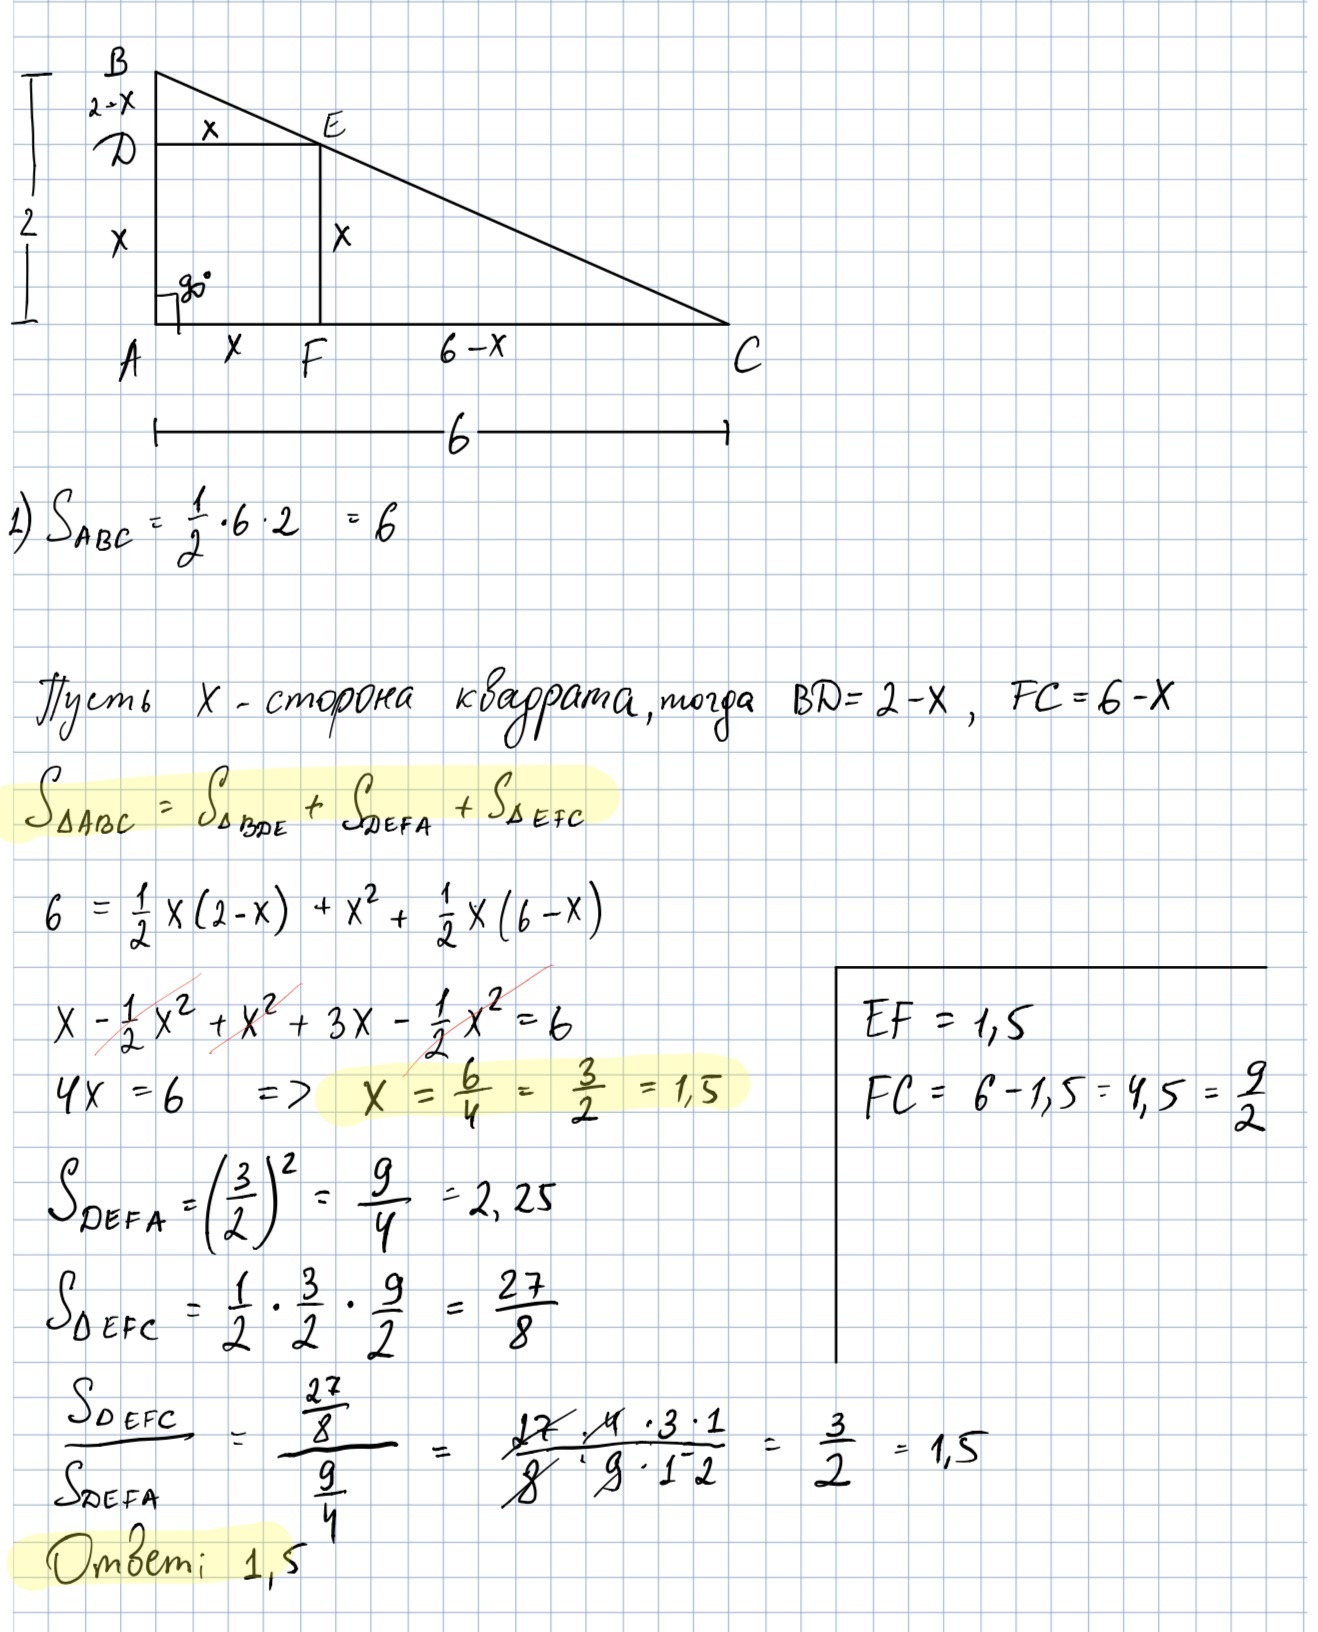 B
2-x
D
x
E
2
x
x
90°
A
x
F
6-x
C
6
1) S_ABC = 1/2 · 6 · 2 = 6
Пусть x - сторона квадрата, тогда BD = 2-x, FC = 6-x
S_ΔABC = S_ΔBDE + S_DEFA + S_ΔEFC
6 = 1/2 x(2-x) + x² + 1/2 x(6-x)
x - 1/2 x² + x² + 3x - 1/2 x² = 6
4x = 6 => x = 6/4 = 3/2 = 1,5
EF = 1,5
FC = 6-1,5 = 4,5 = 9/2
S_DEFA = (3/2)² = 9/4 = 2,25
S_ΔEFC = 1/2 · 3/2 · 9/2 = 27/8
S_ΔEFC / S_DEFA = (27/8) / (9/4) = (27 · 4 · 3 · 1) / (8 · 9 · 1 · 2) = 3/2 = 1,5
Ответ: 1,5